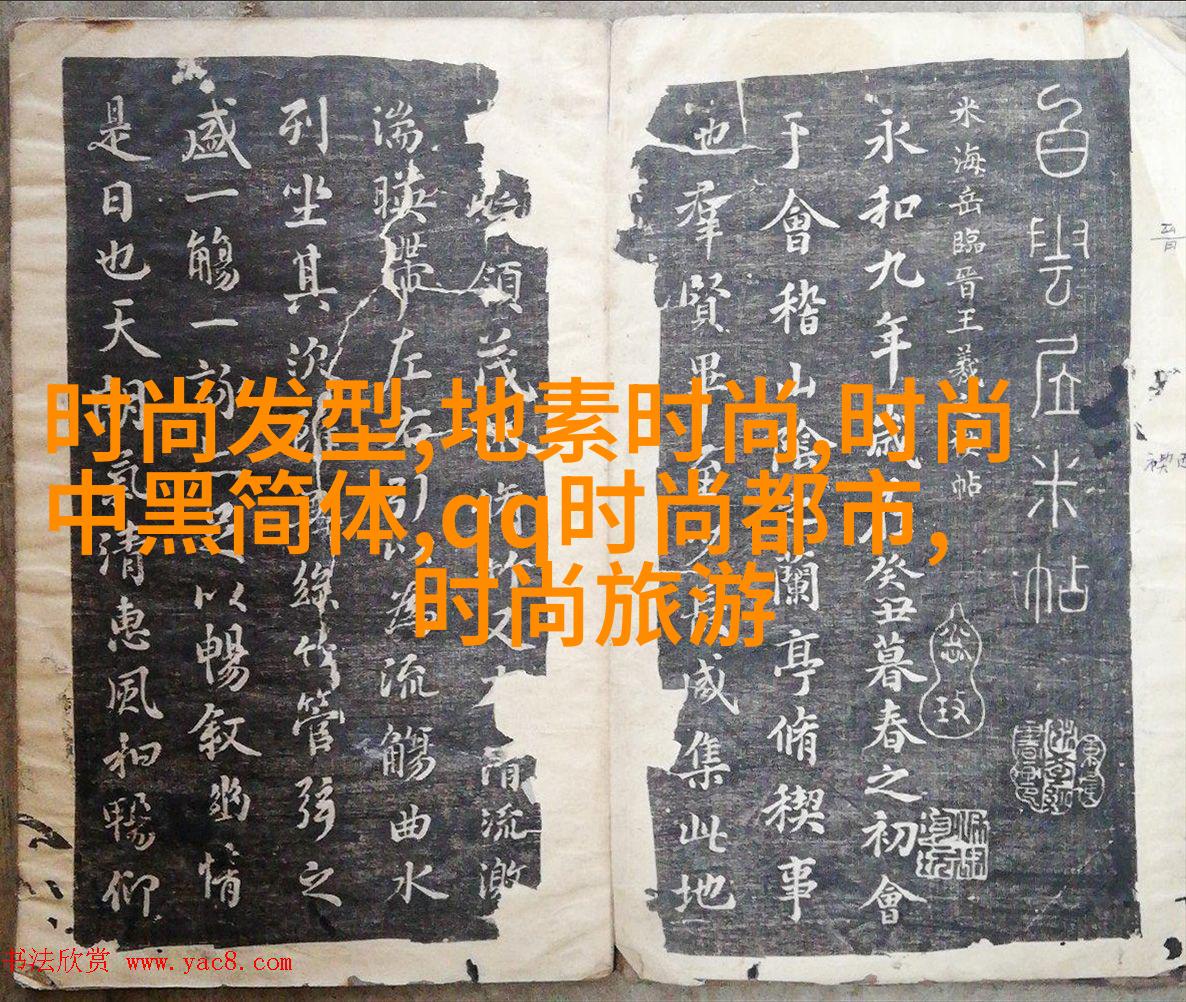 白雲居米帖
米海岳臨晉王羲帖
永和九年歲癸丑暮春之初會
于會稽山陰蘭亭脩禊事
也羣賢畢至咸集此地
領茂又清流激
湍暎帶左右引以為流觴曲水
列坐其次絲竹管弦之
盛一觴一詠以暢敘幽情
是日也天朗氣清惠風和暢仰
时尚发型,地素时尚,时尚
中黑简体,qq时尚都市,
时尚旅游
书法欣赏 www.yac8.com